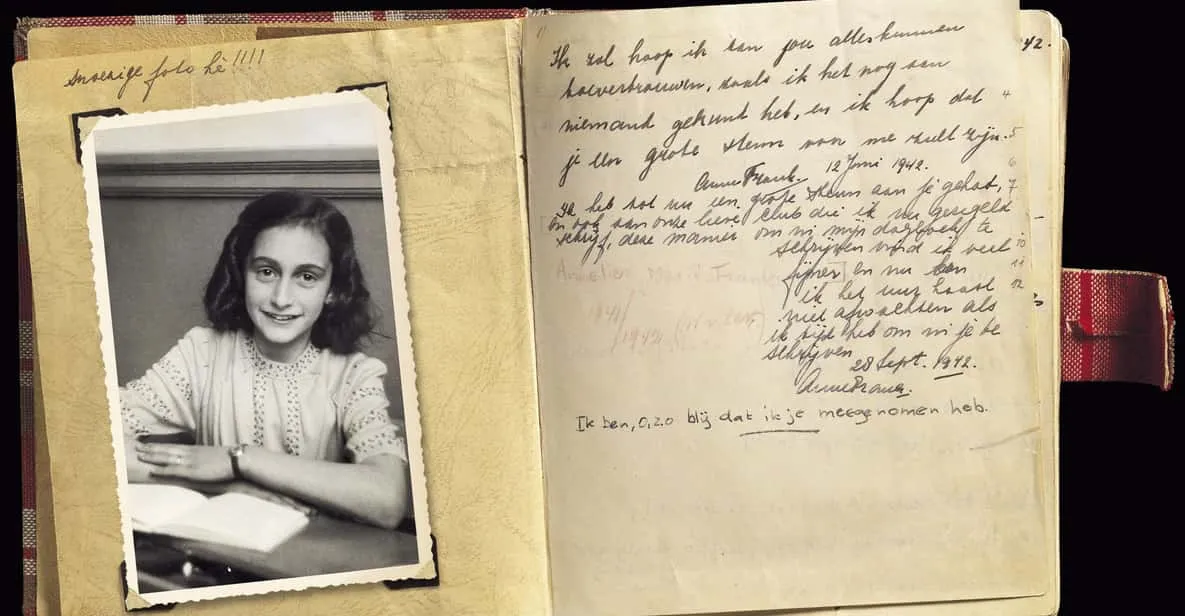 snoezige foto hè!!!!
Ik zal hoop ik aan jou alles kunnen
toevertrouwen, zoals ik het nog aan
niemand gekund heb, en ik hoop dat
je een grote steun voor me zult zijn.
Anne Frank. 12 Juni 1942.
Ik heb tot nu een grote steun aan je gehad,
en ook aan onze lieve club die ik nu geregeld
schrijf, deze manier om in mijn dagboek te
schrijven vind ik veel
fijner en nu kan
ik het uur haast
niet afwachten als
ik tijd heb om in je te
schrijven
28 Sept. 1942.
Anne Frank.
Ik ben, o, zo blij dat ik je meegenomen heb.
42.
4
5
6
7
10
11
12